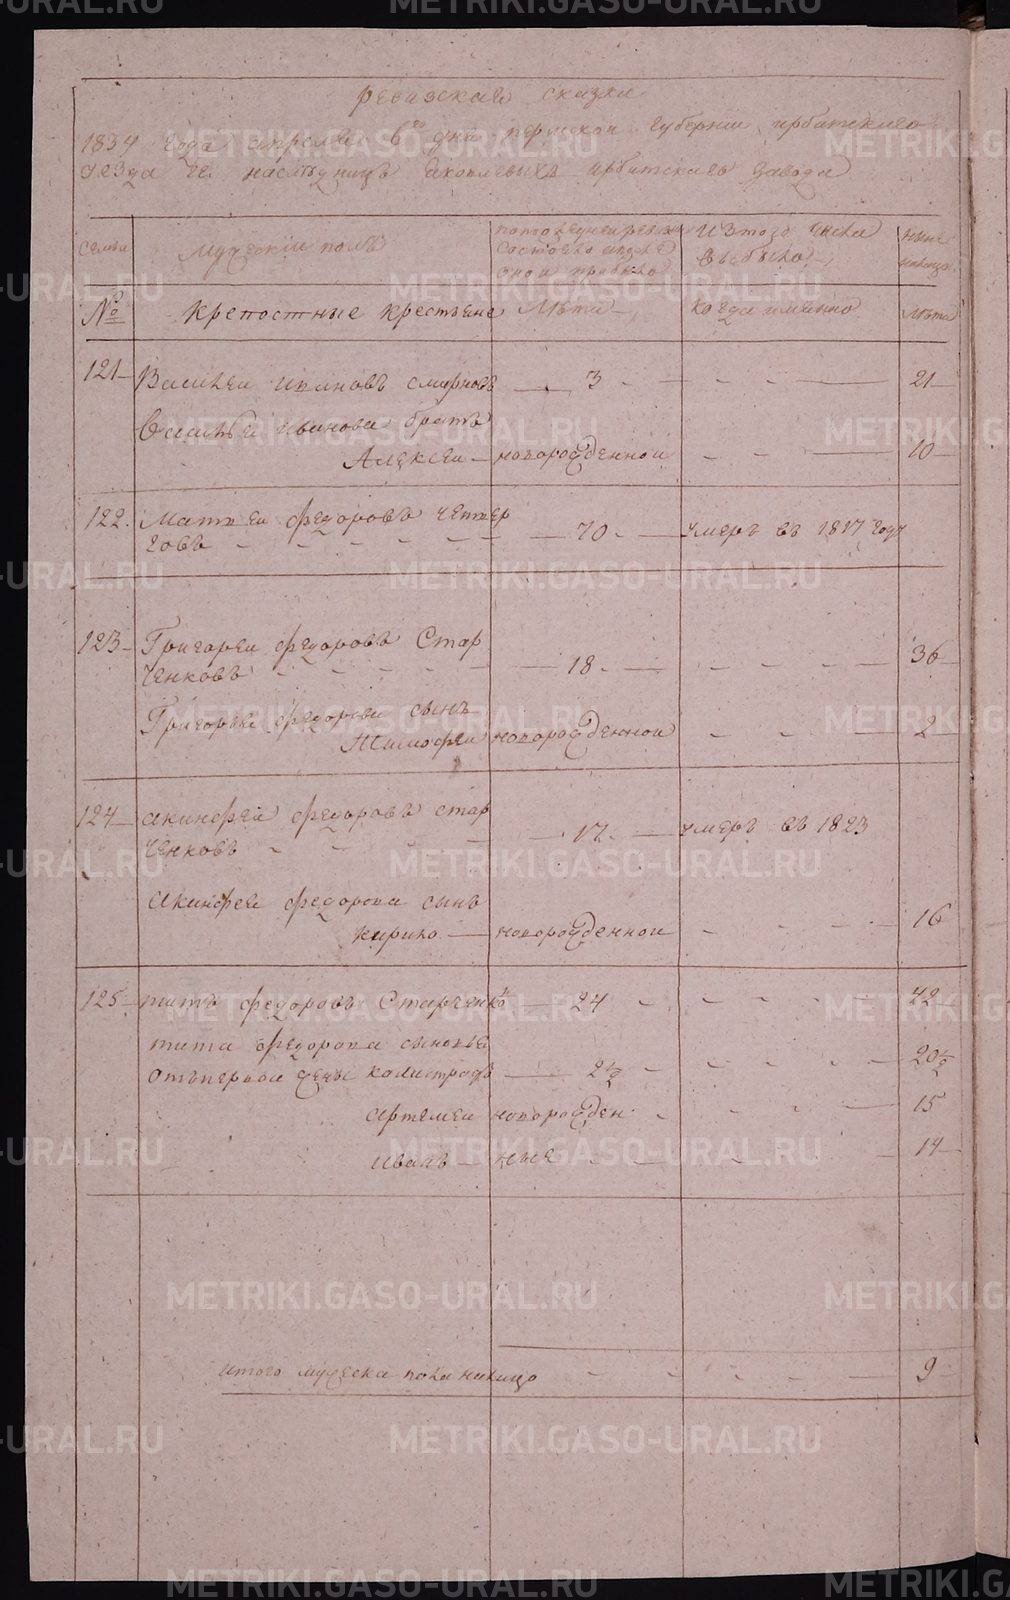 ревизская сказка
1834 года апреля 6го дня пермской губернии ирбитского
уезда гг. наследницъ яковлевыхъ ирбитскаго завода
семьи
Мужескій полъ
по последней ревизіи состояло и после оной прибыло
из того числа выбыло
ныне налицо
№
крепостные крестьяне
Лѣта
когда имянно
лѣта
121 Василей ивановъ смирновъ 3 21
Василья иванова братъ
Алексеи новорожденной 10
122. Матвеи федоровъ четвер
говъ 70 умеръ въ 1817 году
123 Григореи федоровъ Стар
ченковъ 18 36
Григорья федорова сынъ
Тимофеи новорожденной 2
124 акинфеи федоровъ стар
ченковъ 17 умеръ въ 1823
акинфея федорова сынъ
кирило новорожденнои 16
125 титъ федоровъ Старченко 24 42
тита федорова сыновья
отъ первои жены калистратъ 2½ 20½
артемеи новорожден 15
иванъ ние 14
итого мужеска пола налицо 9
METRIKI.GASO-URAL.RU